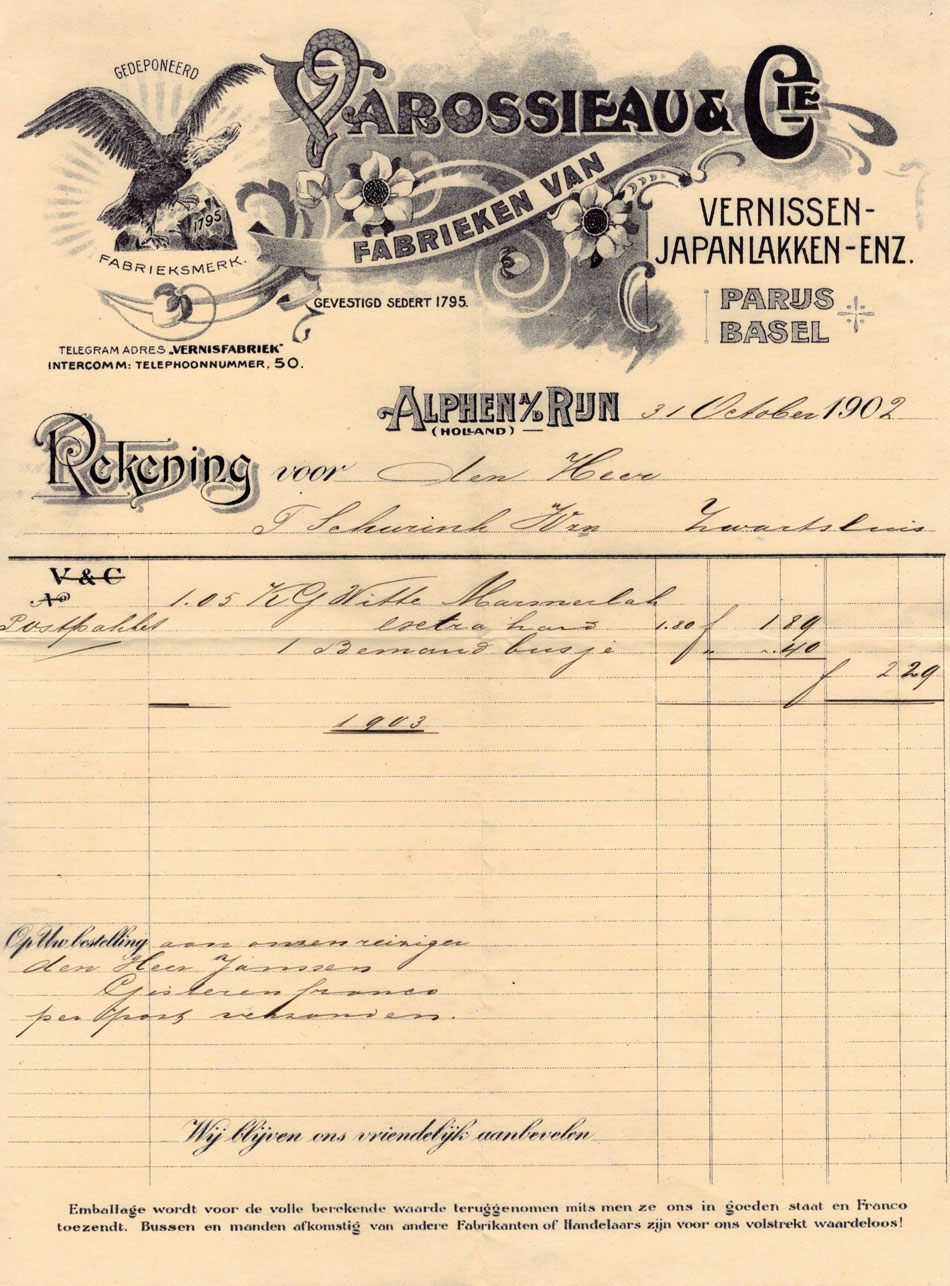 GEDEPONEERD
VAROSSIEAU & CIE
1795
FABRIEKSMERK.
FABRIEKEN VAN
VERNISSEN-
JAPANLAKKEN-ENZ.
GEVESTIGD SEDERT 1795.
PARIJS
BASEL
TELEGRAM ADRES „VERNISFABRIEK"
INTERCOMM: TELEPHOONNUMMER, 50.
ALPHEN A/D RIJN 31 October 1902
(HOLLAND)
Rekening voor den Heer
T Schurink Wzn Zwartsluis
V & C
No
1.05 KG Witte Marmerlak
Postpakket extra hard 1.80 f 1.89
1 Bemand busje f " .. 40
f 2 29
1903
Op Uw bestelling aan onzen reiziger
den Heer Janssen
Gisteren franco
per post verzonden.
Wij blijven ons vriendelijk aanbevelen
Emballage wordt voor de volle berekende waarde teruggenomen mits men ze ons in goeden staat en Franco
toezendt. Bussen en manden afkomstig van andere Fabrikanten of Handelaars zijn voor ons volstrekt waardeloos!